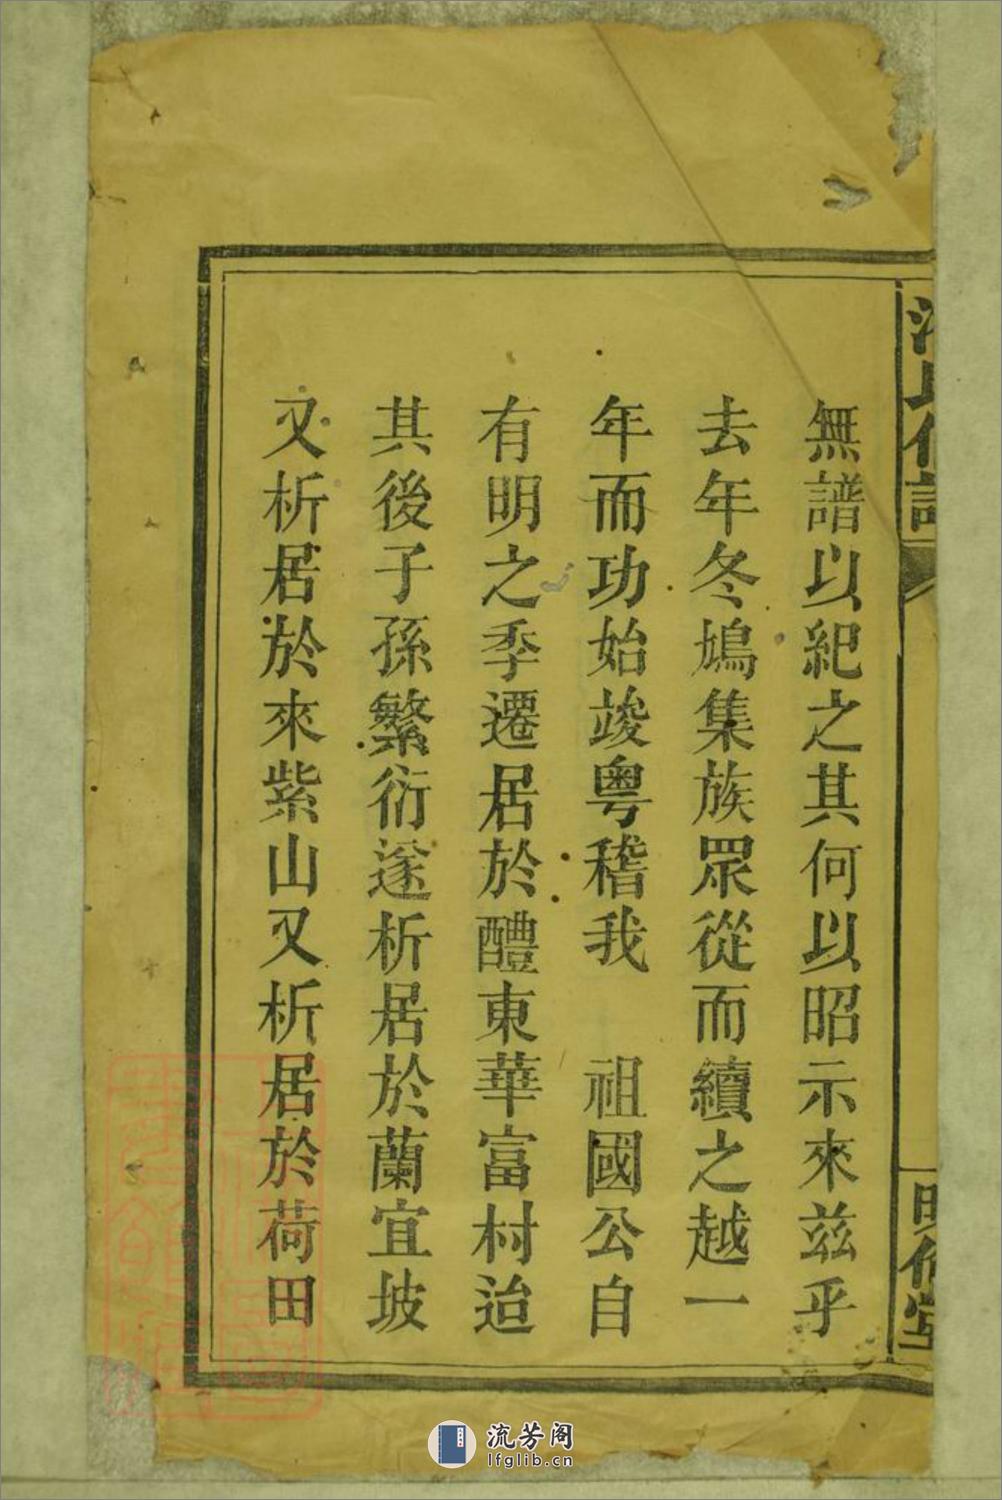 無譜以紀之其何以昭示來兹乎
去年冬鳩集族眾從而續之越一
年而功始竣粵稽我　祖國公自
有明之季遷居於醴東華富村迨
其後子孫繁衍遂析居於蘭宜坡
又析居於來紫山又析居於荷田
流芳阁
lfglib.cn